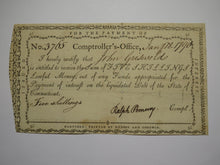 FOR THE PAYMENT OF
No. 3765 Comptroller's-Office, Jany 12 1790
I hereby certify that John Griswold
is entitled to receive the Sum of FIVE SHILLINGS
Lawful Money, out of any Funds appropriated for the
Payment of Interest on the liquidated Debt of the State of
Connecticut.
Five Shillings
Ralph Pomeroy Compt.
HARTFORD: PRINTED BY HUDSON AND GOODWIN.